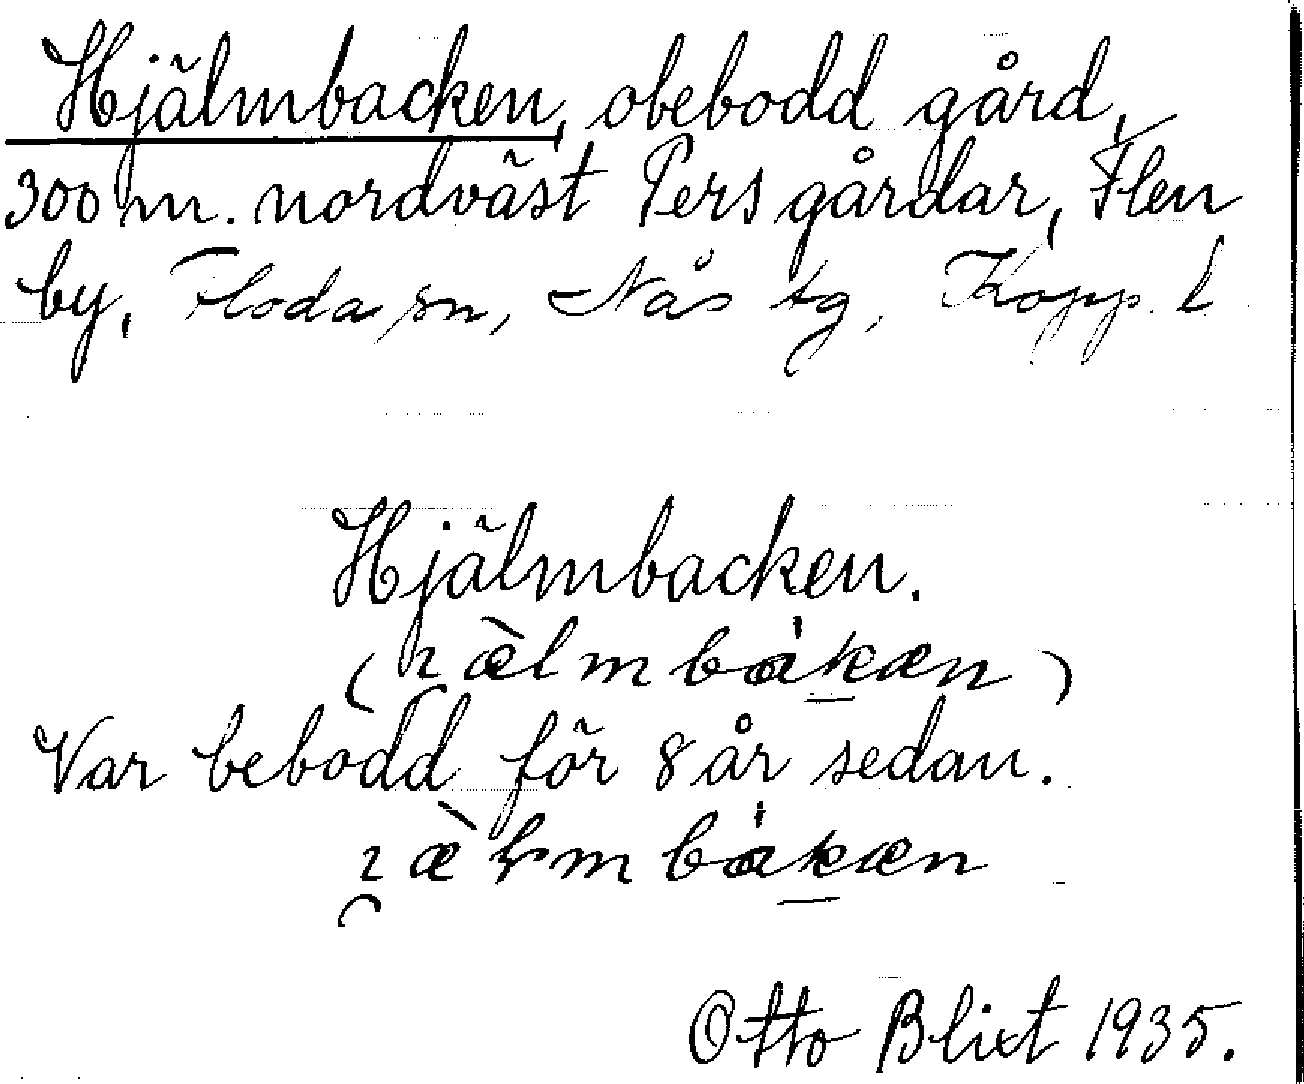 Hjälmbacken, obebodd gård,
300 m. nordväst Pers gårdar, Flen
by, Floda sn, Nås tg, Kopp. l
Hjälmbacken.
Var bebodd för 8 år sedan.
Otto Blixt 1935.